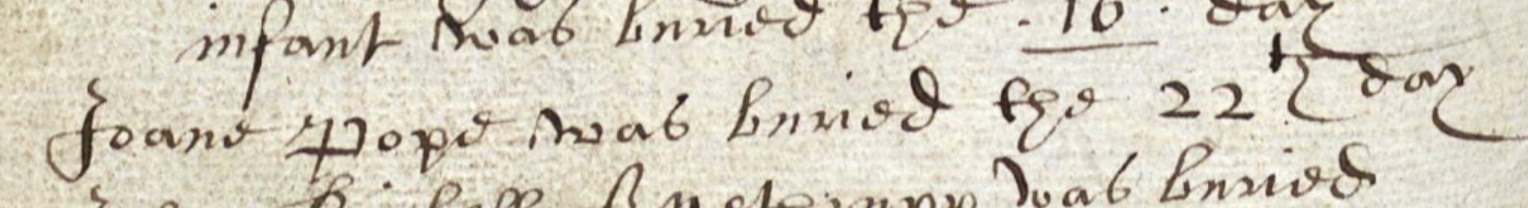 infant was buried the . 16 . day
Joane Pope was buried the 22th day
was buried